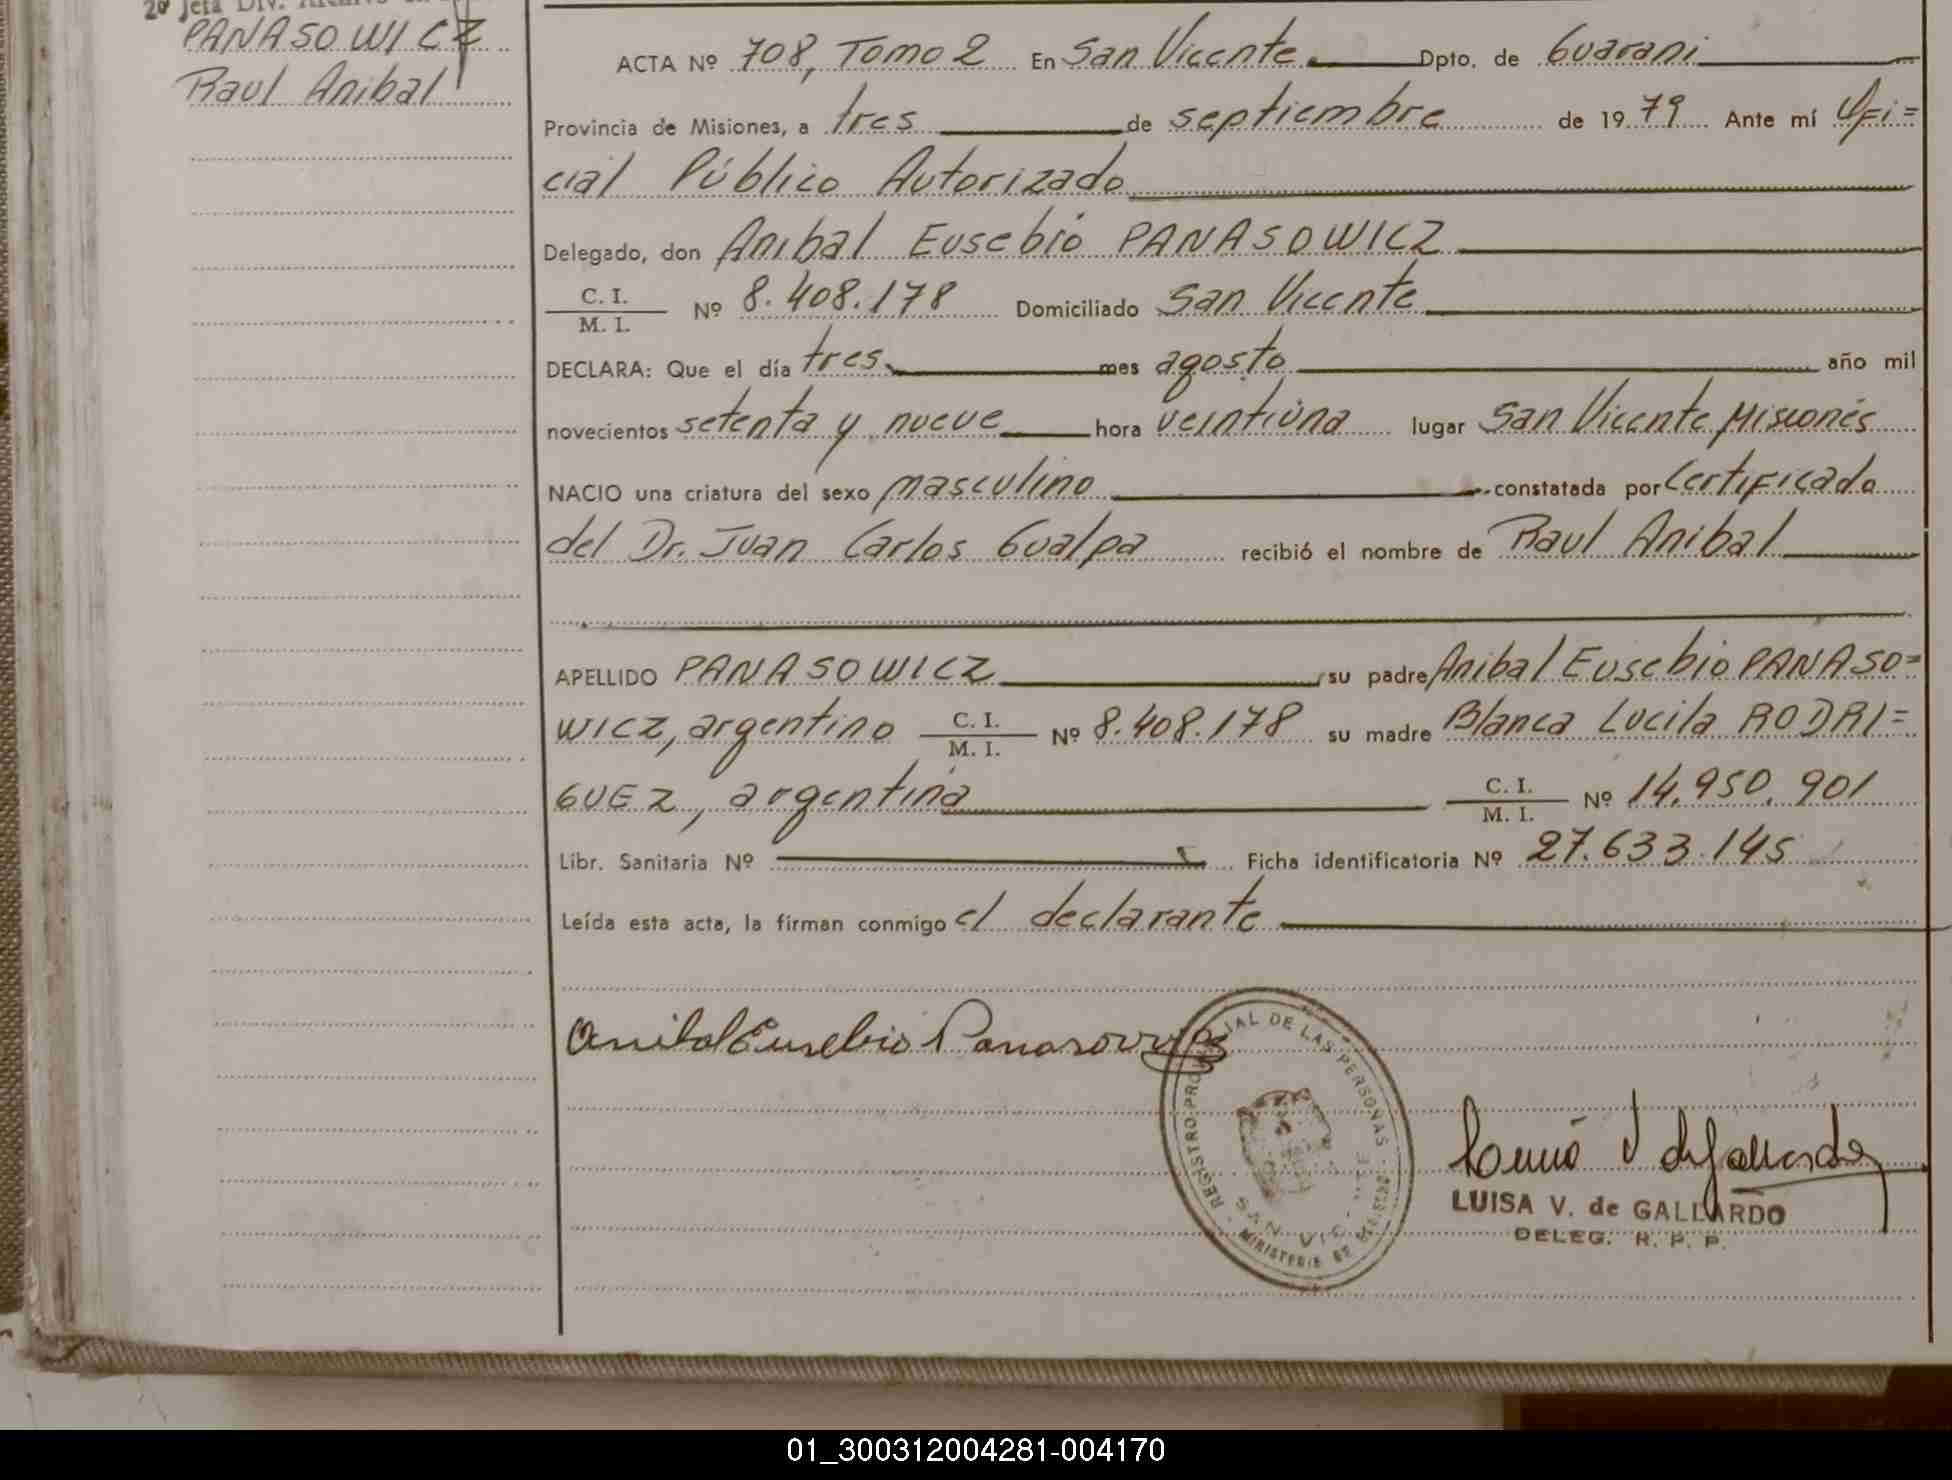 2º Jefa Div. Archivo
PANASOWICZ
Raul Anibal
ACTA Nº 708, Tomo 2 En San Vicente Dpto. de Guarani
Provincia de Misiones, a tres de septiembre de 1979 Ante mí Ofi=
cial Público Autorizado
Delegado, don Anibal Eusebio PANASOWICZ
C. I. / M. I. Nº 8.408.178 Domiciliado San Vicente
DECLARA: Que el día tres mes agosto año mil
novecientos setenta y nueve hora veintiuna lugar San Vicente Misiones
NACIO una criatura del sexo masculino constatada por Certificado
del Dr. Juan Carlos Gualpa recibió el nombre de Raul Anibal
APELLIDO PANASOWICZ su padre Anibal Eusebio PANASO=
WICZ, argentino C. I. / M. I. Nº 8.408.178 su madre Blanca Lucila RODRI=
GUEZ, argentina C. I. / M. I. Nº 14.950.901
Libr. Sanitaria Nº Ficha identificatoria Nº 27.633.145
Leída esta acta, la firman conmigo el declarante
Anibal Eusebio Panasowicz
REGISTRO PROVINCIAL DE LAS PERSONAS
SAN VIC
MINISTERIO DE
LUISA V. de GALLARDO
DELEG. R. P. P.
01_300312004281-004170